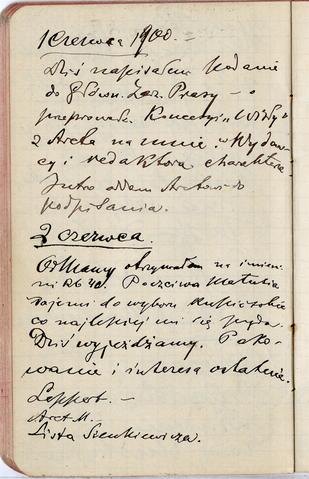 1 czerwca 1900. –
Dziś napisałem podanie
do Główn. Zarz. Prasy – o
przeprowadz. Koncesyi „Wisły”
z Arcta na mnie i Wydaw-
cy i redaktora charakterze.
Jutro oddam Arctowi do
podpisania.
2 czerwca.
Od Mamy otrzymałem na imieni-
ni Rb 40. Poczciwa Matula
daje mi do wyboru kupić sobie
co najlepiej mi się przyda.
Dziś wyjeżdżamy. Pako-
wanie i interesa ostatnie.
Leppert. –
Arct M.
Lista Sienkiewicza.